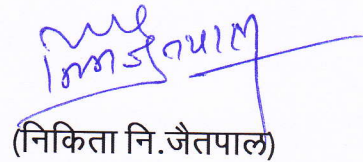 (निकिता नि.जैतपाल)